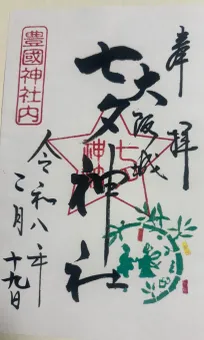 奉拝
大阪城
七夕神社
七夕
神社
令和八年
二月
十九日
豊國神社内